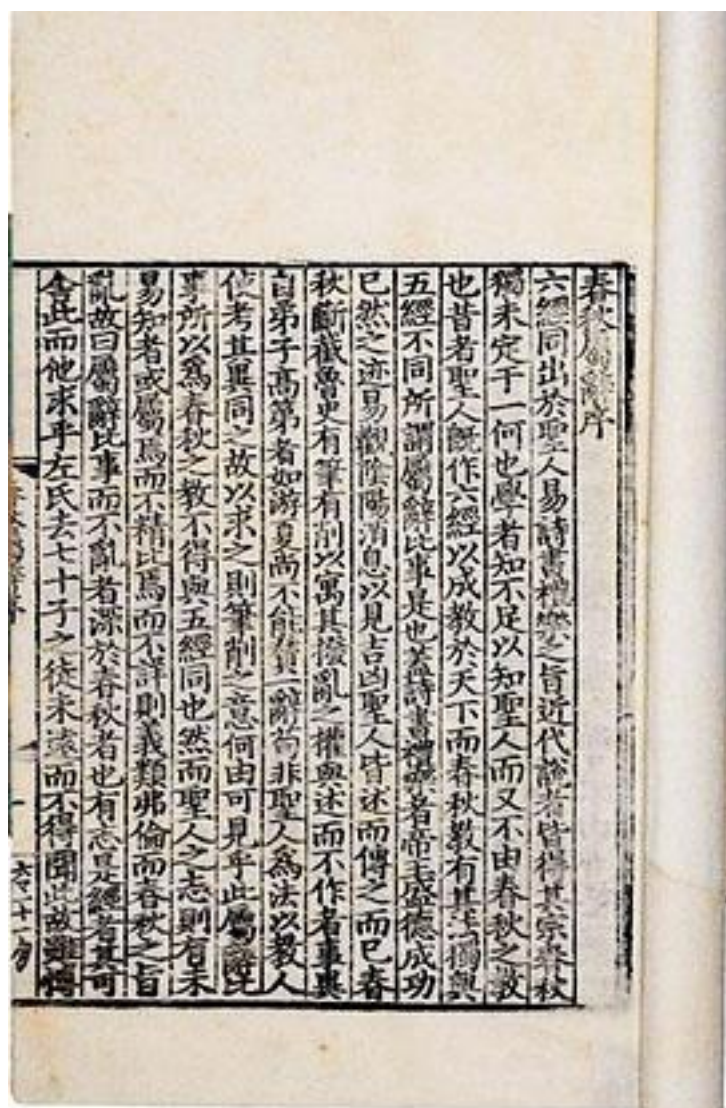 春秋屬辭序
六經同出於聖人易詩書禮樂之旨近代說者皆得其宗春秋
獨未定于一何也學者知不足以知聖人而又不由春秋之教
也昔者聖人既作六經以成教於天下而春秋教有其法獨與
五經不同所謂屬辭比事是也蓋詩書禮樂者帝王盛德成功
已然之迹易觀陰陽消息以見吉凶聖人皆述而傳之而已春
秋斷截魯史有筆有削以寓其撥亂之權與述而不作者事異
自弟子高第者如游夏尚不能贊一辭苟非聖人為法以教人
使考其異同之故以求之則筆削之意何由可見乎此屬辭比
事所以為春秋之教不得與五經同也然而聖人之志則有未
易知者或屬焉而不精比焉而不詳則義類弗倫而春秋之旨
亂故曰屬辭比事而不亂者深於春秋者也有志是經者其可
舍此而他求乎左氏去七十子之徒未遠而不得聞此故雖傳